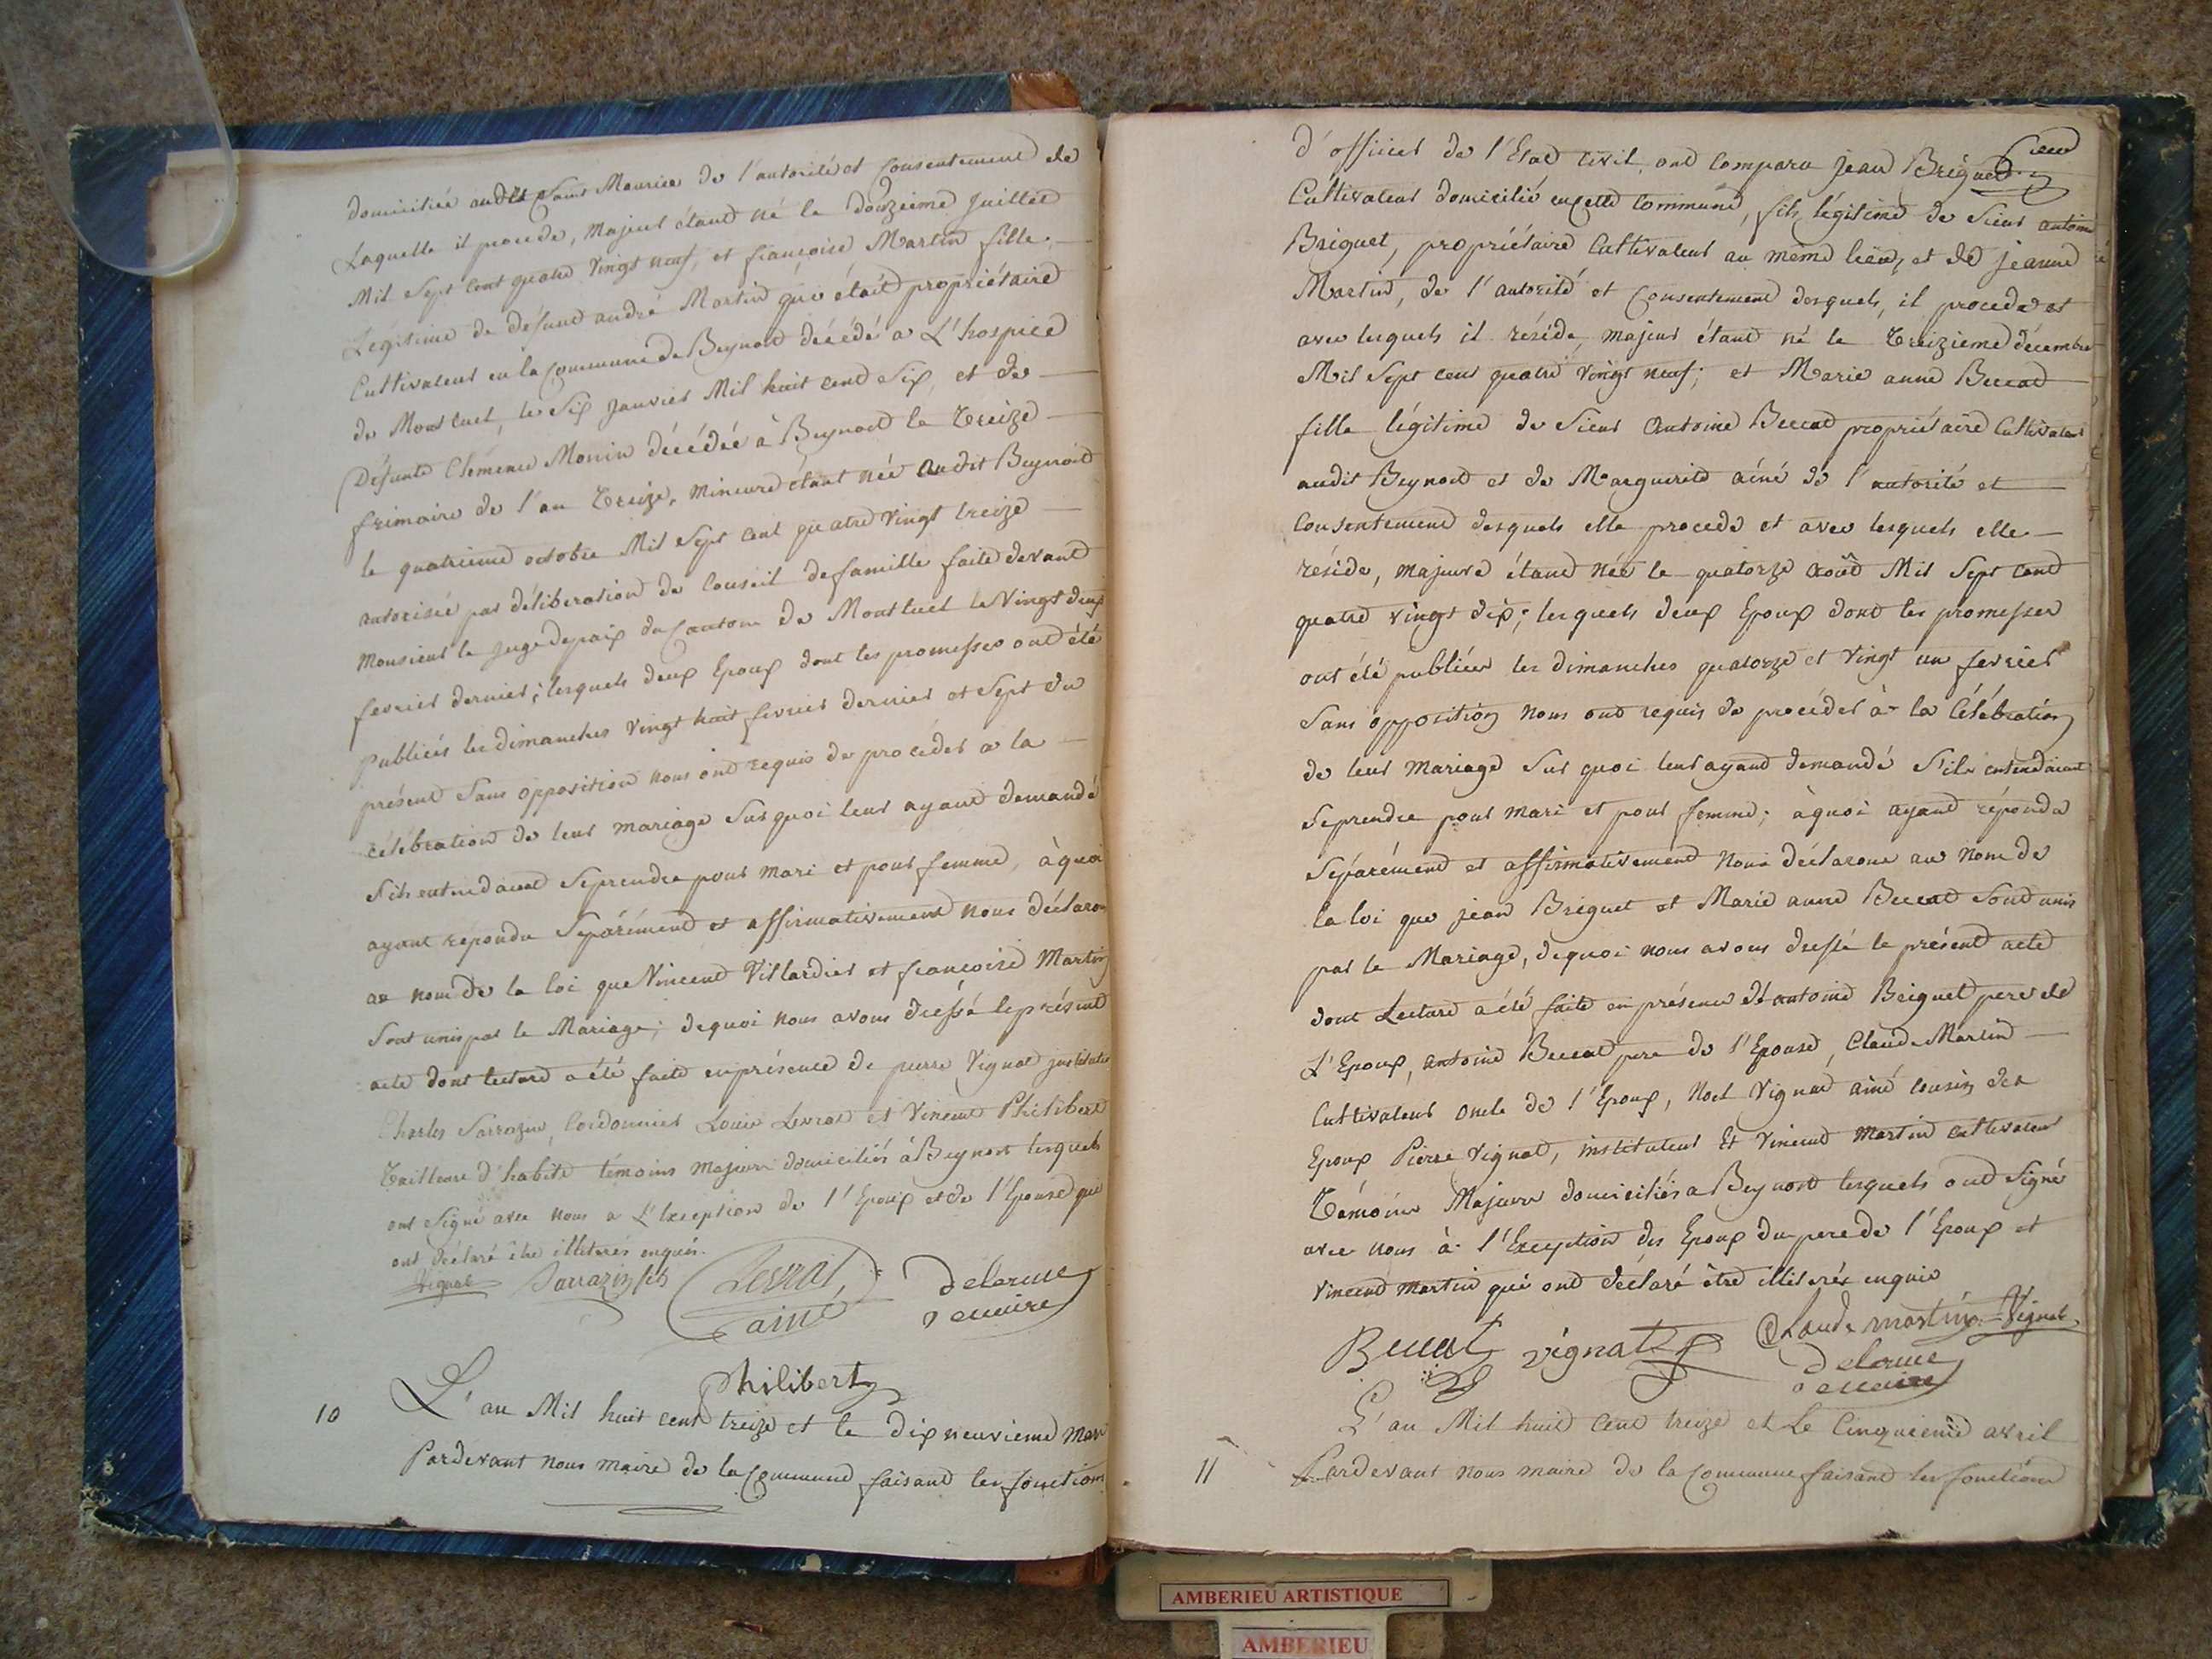 domiciliée audit Saint Maurice de l'autorité et Consentement de
Laquelle il procede, Majeur étant né le douzieme Juillet
Mil Sept Cent quatre Vingt neuf, et francoise Martin fille
Légitime de défunt andré Martin qui était propriétaire
Cultivateur en la Commune de Beynost décédé a L'hospice
de Montluel, le Six Janvier Mil huit cent Six, et de
Défunte Clémence Monin décédée à Beynost le Treize
frimaire de l'an Treize, mineure étant née audit Beynost
le quatrieme octobre Mil Sept Cent quatre Vingt treize
autorisée par déliberation de Conseil de famille faite devant
Monsieur le Juge de paix du Canton de Montluel le Vingt deux
fevrier dernier; lesquels deux Epoux dont les promesses ont été
Publiées les dimanches Vingt huit fevrier dernier et Sept du
présent Sans opposition nous ont requis de procéder a la
célébration de leur mariage Sur quoi leur ayant demandé
S'ils entendaient Se prendre pour mari et pour femme, à quoi
ayant répondu Séparément et affirmativement nous déclarons
au nom de la loi que Vincent Villardier et francoise Martin
Sont unis par le Mariage; dequoi nous avons dréssé le présent
acte dont lecture a été faite en présence de pierre Vignat instituteur
Charles Sarrazin, Cordonnier Louis Levrat et Vincent Philibert
Tailleurs d'habits témoins majeurs domiciliés à Beynost lesquels
ont Signé avec nous a L'Exception de l'Epoux et de l'Epouse qui
ont déclaré être illiterés enquis.
Vignat Sarrazin fils Levrat ainé delorme maire
Philibert
10 L'an Mil huit cent treize et le dix neuvieme Mars
Pardevant nous maire de la Commune faisant les fonctions
d'officier de l'Etat civil, ont comparu Jean Briguet
Cultivateur domicilié en cette Commune, fils légitime de Sieur antoine
Briguet, propriétaire Cultivateur au même lieu, et de jeanne
Martin, de l'autorité et Consentement desquels, il procede et
avec lesquels il réside, majeur étant né le Treizieme décembre
Mil Sept cent quatre Vingt neuf; et Marie anne Beccat
fille légitime de Sieur Antoine Beccat propriétaire Cultivateur
audit Beynost et de Marguerite ainé de l'autorité et
Consentement desquels elle procede et avec lesquels elle
réside, majeure étant née le quatorze août Mil Sept cent
quatre vingt dix; lesquels deux Epoux dont les promesses
ont été publiées les dimanches quatorze et Vingt un fevrier
Sans opposition nous ont requis de procéder à la Célébration
de leur Mariage Sur quoi leur ayant demandé S'ils entendaient
Se prendre pour mari et pour femme; à quoi ayant répondu
Séparément et affirmativement Nous déclarons au nom de
la loi que jean Briguet et Marie anne Beccat Sont unis
par le Mariage, dequoi nous avons dressé le présent acte
dont Lecture a été faite en présence de antoine Briguet pere de
L'Epoux, antoine Beccat pere de l'Epouse, Claude Martin
Cultivateur oncle de l'Epoux, Noel Vignat ainé cousin des
Epoux Pierre Vignat, instituteur Et Vincent Martin cultivateur
Témoins Majeurs domiciliés a Beynost lesquels ont Signé
avec nous à l'Exception des Epoux du pere de l'Epoux et
Vincent Martin qui ont déclaré être illiterés enquis
Beccat Vignat Claude martin Vignat
delorme
maire
L'an Mil huit Cent treize et Le Cinquieme avril
11 Pardevant nous maire de la Commune faisant les fonctions
AMBERIEU ARTISTIQUE
AMBERIEU